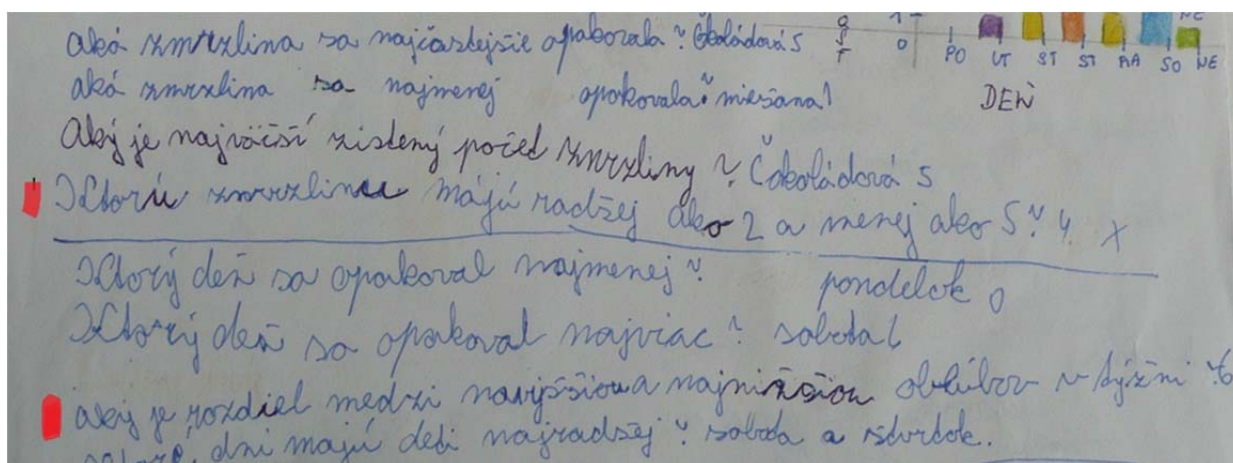 aká zmrzlina sa najčastejšie opakovala? Čokoládová 5
aká zmrzlina sa najmenej opakovala? miešana 1
Aký je najväčší zistený počet zmrzliny? Čokoládová 5
Ktorú zmrzlinu májú radšej ako 2 a menej ako 5? 4 x
Ktorý deň sa opakoval najmenej? pondelok 0
Ktorý deň sa opakoval najviac? sobota 6
aký je rozdiel medzi najvyššiou a najnižšiou obľúbov v týžni? 6
dni majú deti najradšej? sobota a štvrtok.
1
0
PO UT ST ŠT PIA SO NE
NE
DEŇ